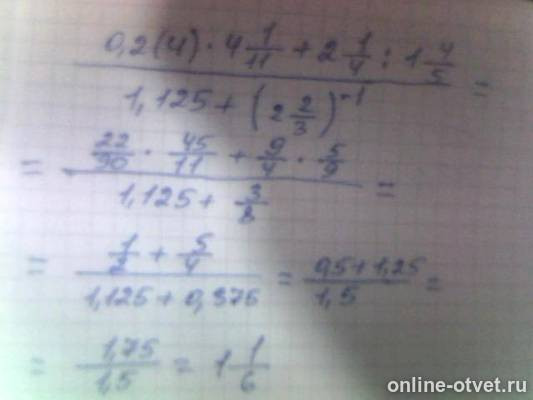 0,2(4) · 4 1/11 + 2 1/4 : 1 4/5
1,125 + (2 2/3)^-1 =
= 22/90 · 45/11 + 9/4 · 5/9
1,125 + 3/8 =
= 1/2 + 5/4 = 0,5 + 1,25
1,125 + 0,375 1,5 =
= 1,75/1,5 = 1 1/6
online-otvet.ru